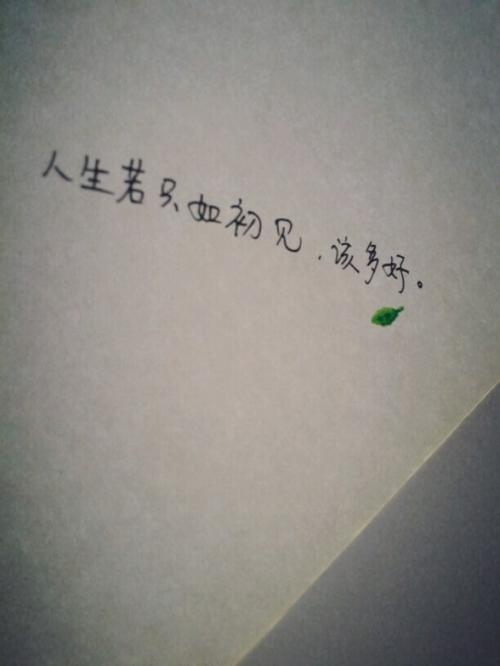 人生若只如初见,该多好。